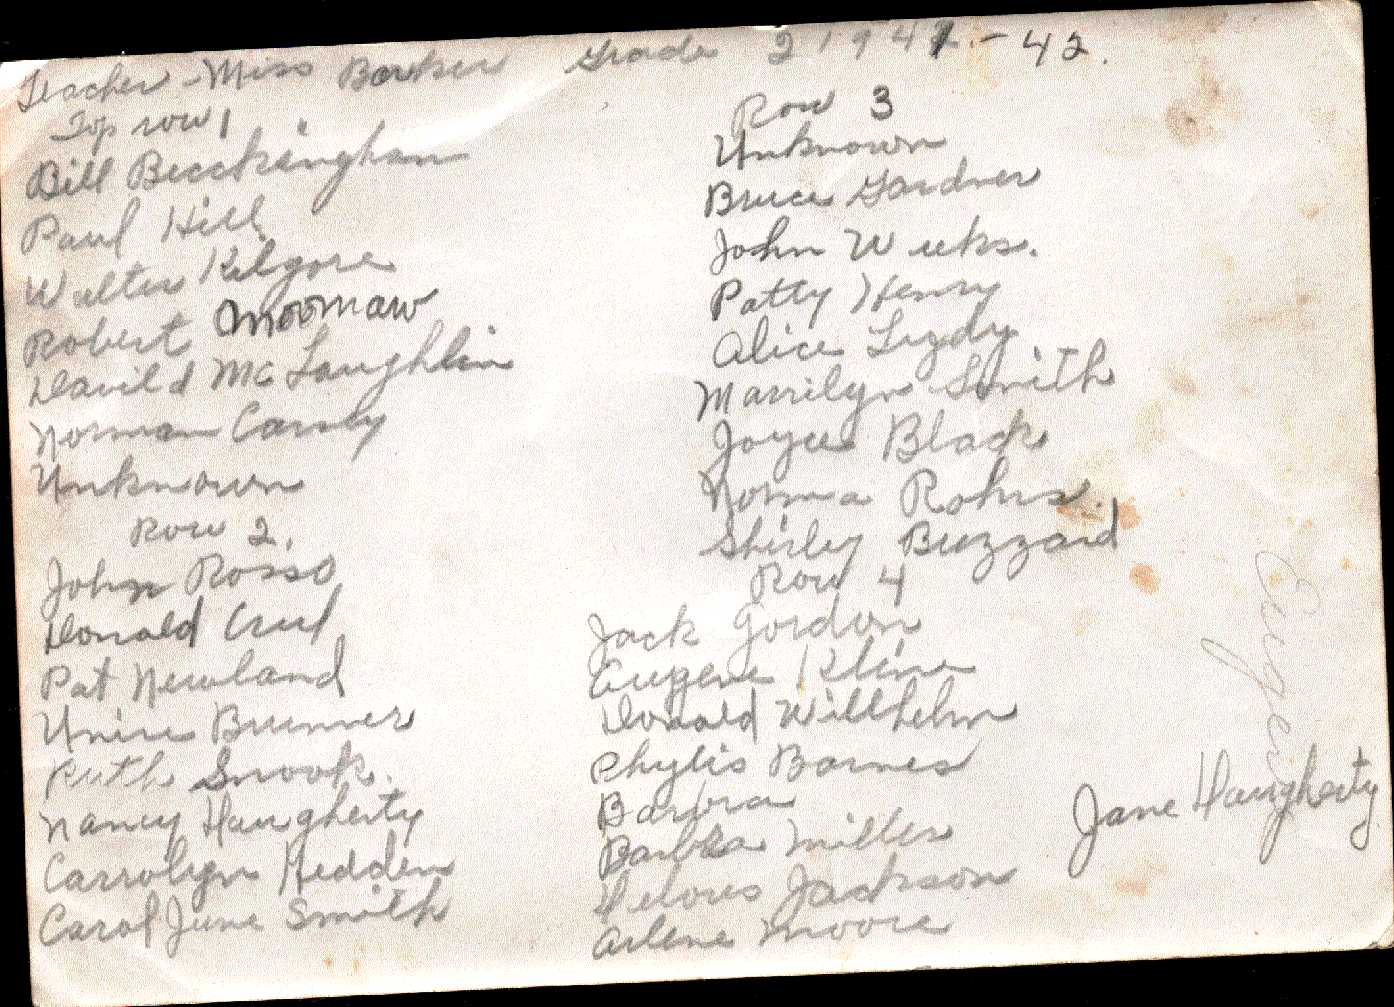 Teacher - Miss Barker Grade 2 1941 - 42.
Top row 1
Bill Beckingham
Paul Hill
Walter Kilgore
Robert Moomaw
Davild McLaughlin
Norman Canby
Unknown
Row 2.
John Rosso
Donald Crul
Pat Newland
Unice Brunner
Ruth Snook.
Nancy Haugherty
Carrolyn Hedden
Carol June Smith
Row 3
Unknown
Bruce Gardner
John Weeks.
Patty Henry
Alice
Marrilyn Smith
Joyce Black
Norma Rohrs.
Shirley Buzzard
Row 4
Jack Gordon
Eugene Kline
Donald Willhelm
Phylis Barnes
Barbra
Barbra Miller
Delores Jackson
Arlene Moore
Jane Haugherty
Eugene